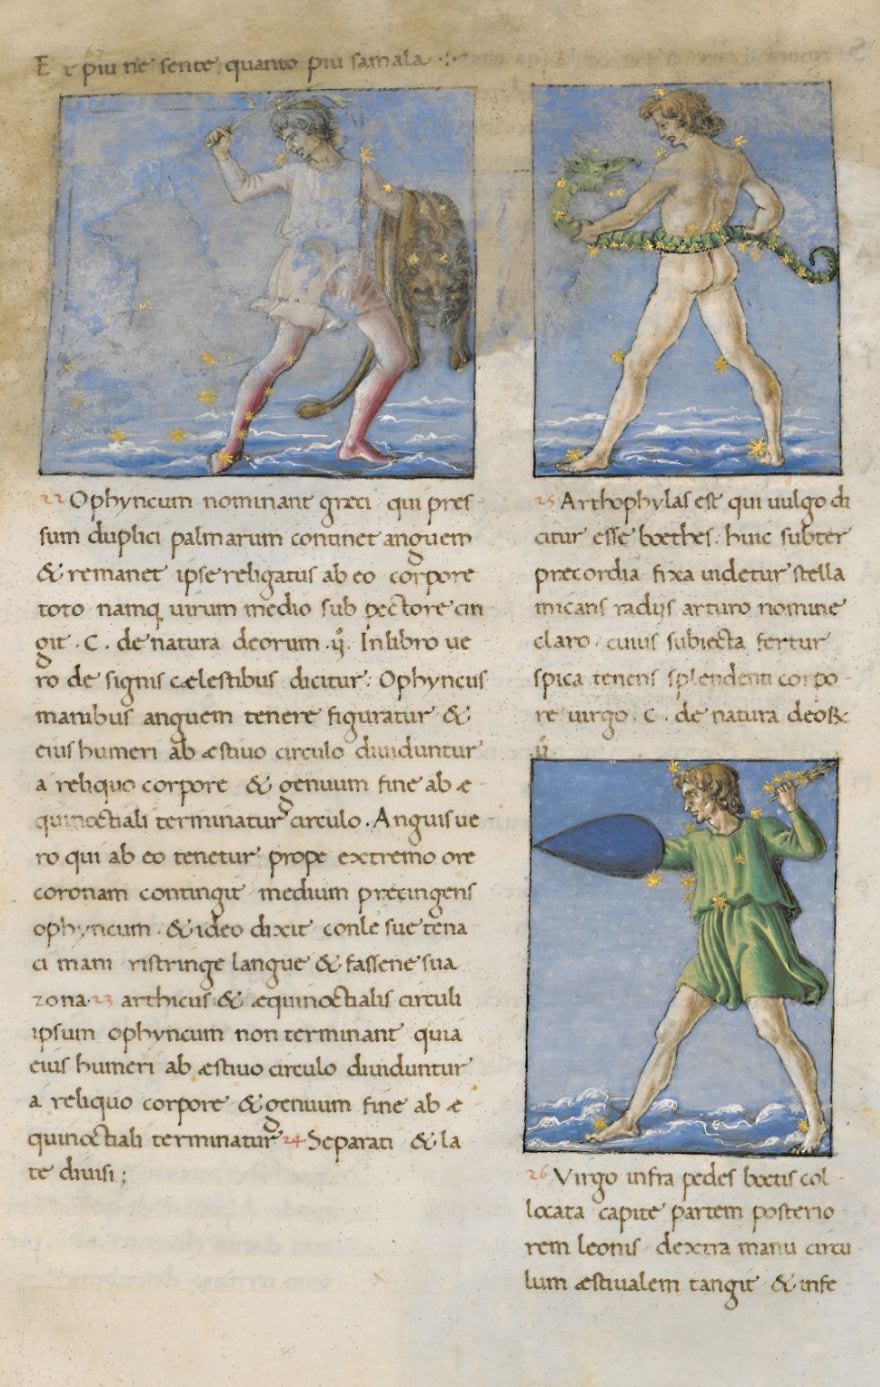 Et piu ne sente quanto piu samala
22 Ophyncum nominant greci qui pres
sum duplici palmarum continet anguem
& remanet ipse religatus ab eo corpore
toto namq uirum medio sub pectore cin
git . C . de natura deorum . ij . In libro ue
ro de signis cælestibus dicitur: Ophyncus
manibus anguem tenere figuratur &
eius humeri ab æstiuo circulo diuiduntur
a reliquo corpore & genuum fine ab æ
quinoctiali terminatur circulo . Anguis ue
ro qui ab eo tenetur prope extremo ore
coronam contingit medium precingens
ophyncum . & ideo dixit con le sue tena
ci mani ristringe langue & fassene sua
zona . 23 arthicus & æquinoctialis circuli
ipsum ophyncum non terminant quia
eius humeri ab æstiuo circulo diuiduntur
a reliquo corpore & genuum fine ab æ
quinoctiali terminatur 24 Separati & la
te diuisi ;
25 Arthophylas est qui uulgo di
citur esse boethes . huic subter
precordia fixa uidetur stella
micans radijs arturo nomine
claro . cuius subiecta fertur
spica tenens splendenti corpo
re uirgo . C . de natura deoꝝ
. ij
26 Virgo infra pedes boetis col
locata capite partem posterio
rem leonis dextra manu circu
lum æstiualem tangit & infe